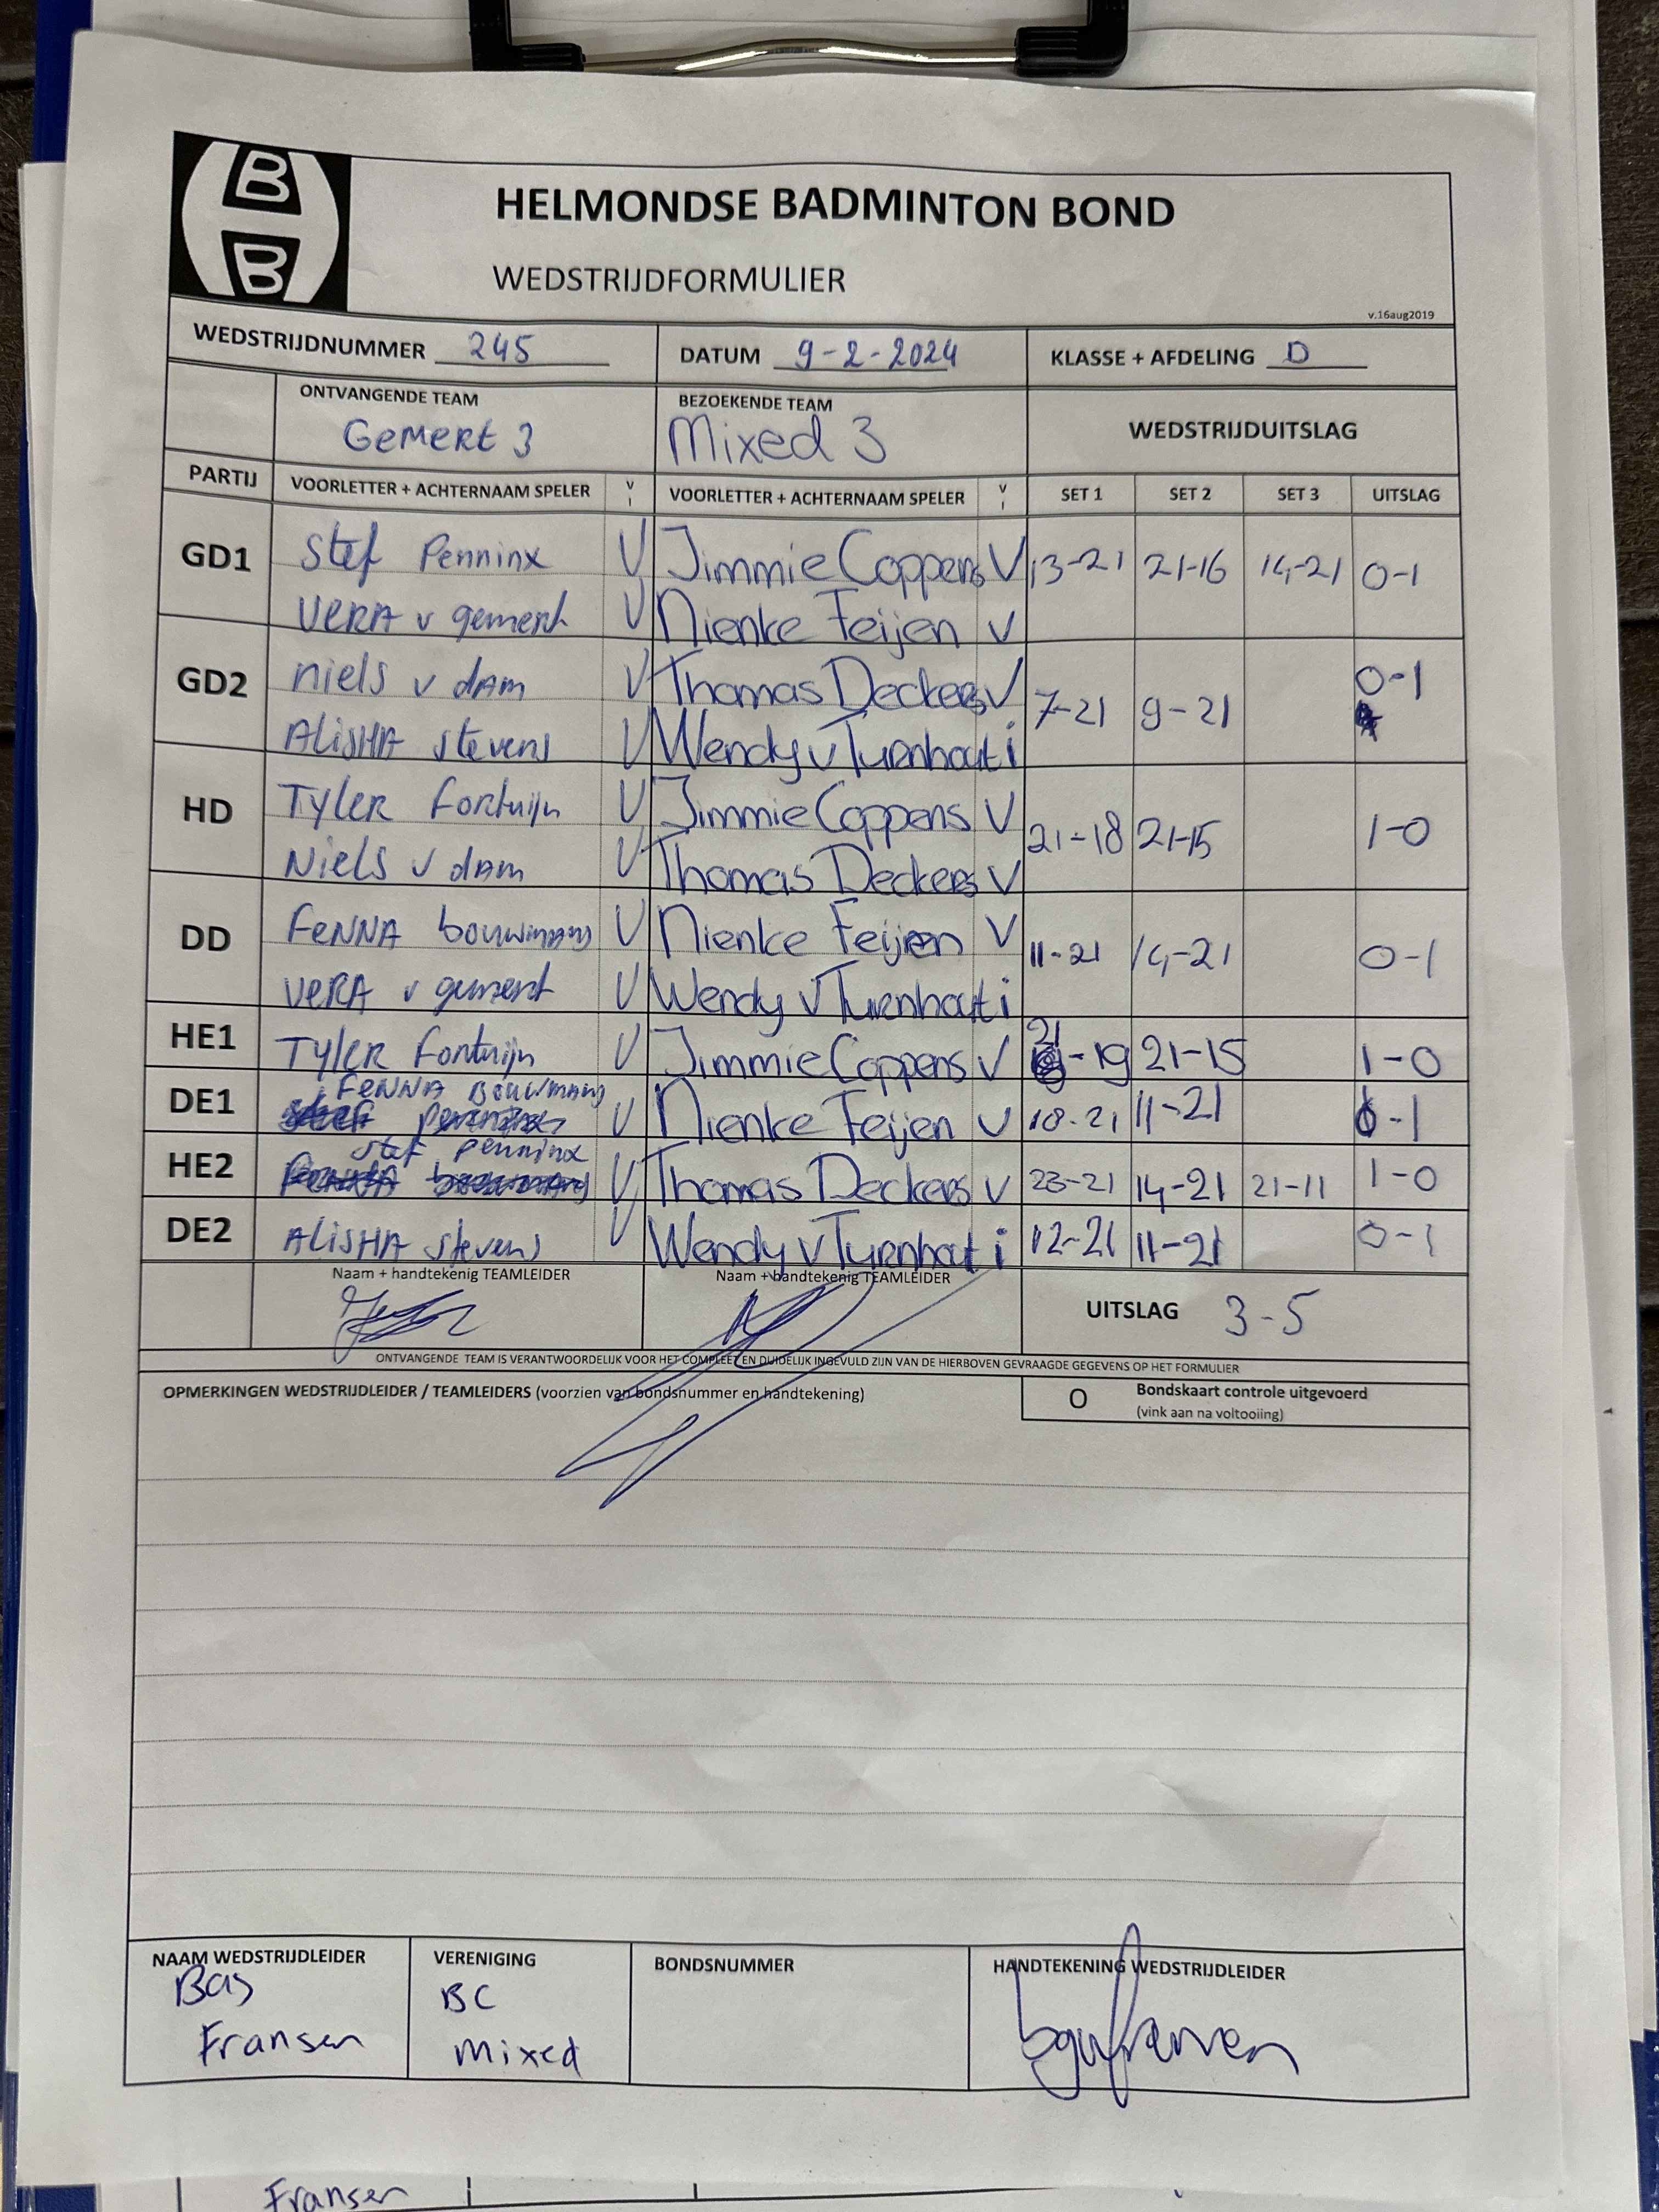 B
B
HELMONDSE BADMINTON BOND
WEDSTRIJDFORMULIER
v.16aug2019
WEDSTRIJDNUMMER 245 DATUM 9-2-2024 KLASSE + AFDELING D
ONTVANGENDE TEAM BEZOEKENDE TEAM WEDSTRIJDUITSLAG
Gemert 3 Mixed 3
PARTIJ VOORLETTER + ACHTERNAAM SPELER V I VOORLETTER + ACHTERNAAM SPELER V I SET 1 SET 2 SET 3 UITSLAG
GD1 Stef Penninx V Jimmie Coppens V 13-21 21-16 14-21 0-1
VERA v gemert V Nienke Feijen V
GD2 niels v dam V Thomas Deckers V 7-21 9-21 0-1
ALiSHA stevens V Wendy v Turnhout i
HD Tyler Fortuijn V Jimmie Coppens V 21-18 21-15 1-0
Niels v dam V Thomas Deckers V
DD FeNNA bouwmans V Nienke Feijen V 11-21 14-21 0-1
VERA v gemert V Wendy v Turnhout i
HE1 TYLER Fortuijn V Jimmie Coppens V 21-19 21-15 1-0
DE1 FENNA BOUWMANS V Nienke Feijen V 18-21 11-21 0-1
HE2 stef penninx V Thomas Deckers V 23-21 14-21 21-11 1-0
DE2 ALiSHA stevens V Wendy v Turnhout i 12-21 11-21 0-1
Naam + handtekenig TEAMLEIDER Naam + handtekenig TEAMLEIDER
UITSLAG 3-5
ONTVANGENDE TEAM IS VERANTWOORDELIJK VOOR HET COMPLEET EN DUIDELIJK INGEVULD ZIJN VAN DE HIERBOVEN GEVRAAGDE GEGEVENS OP HET FORMULIER
OPMERKINGEN WEDSTRIJDLEIDER / TEAMLEIDERS (voorzien van bondsnummer en handtekening) O Bondskaart controle uitgevoerd
(vink aan na voltooiing)
NAAM WEDSTRIJDLEIDER VERENIGING BONDSNUMMER HANDTEKENING WEDSTRIJDLEIDER
Bas BC
Fransen Mixed
Fransen